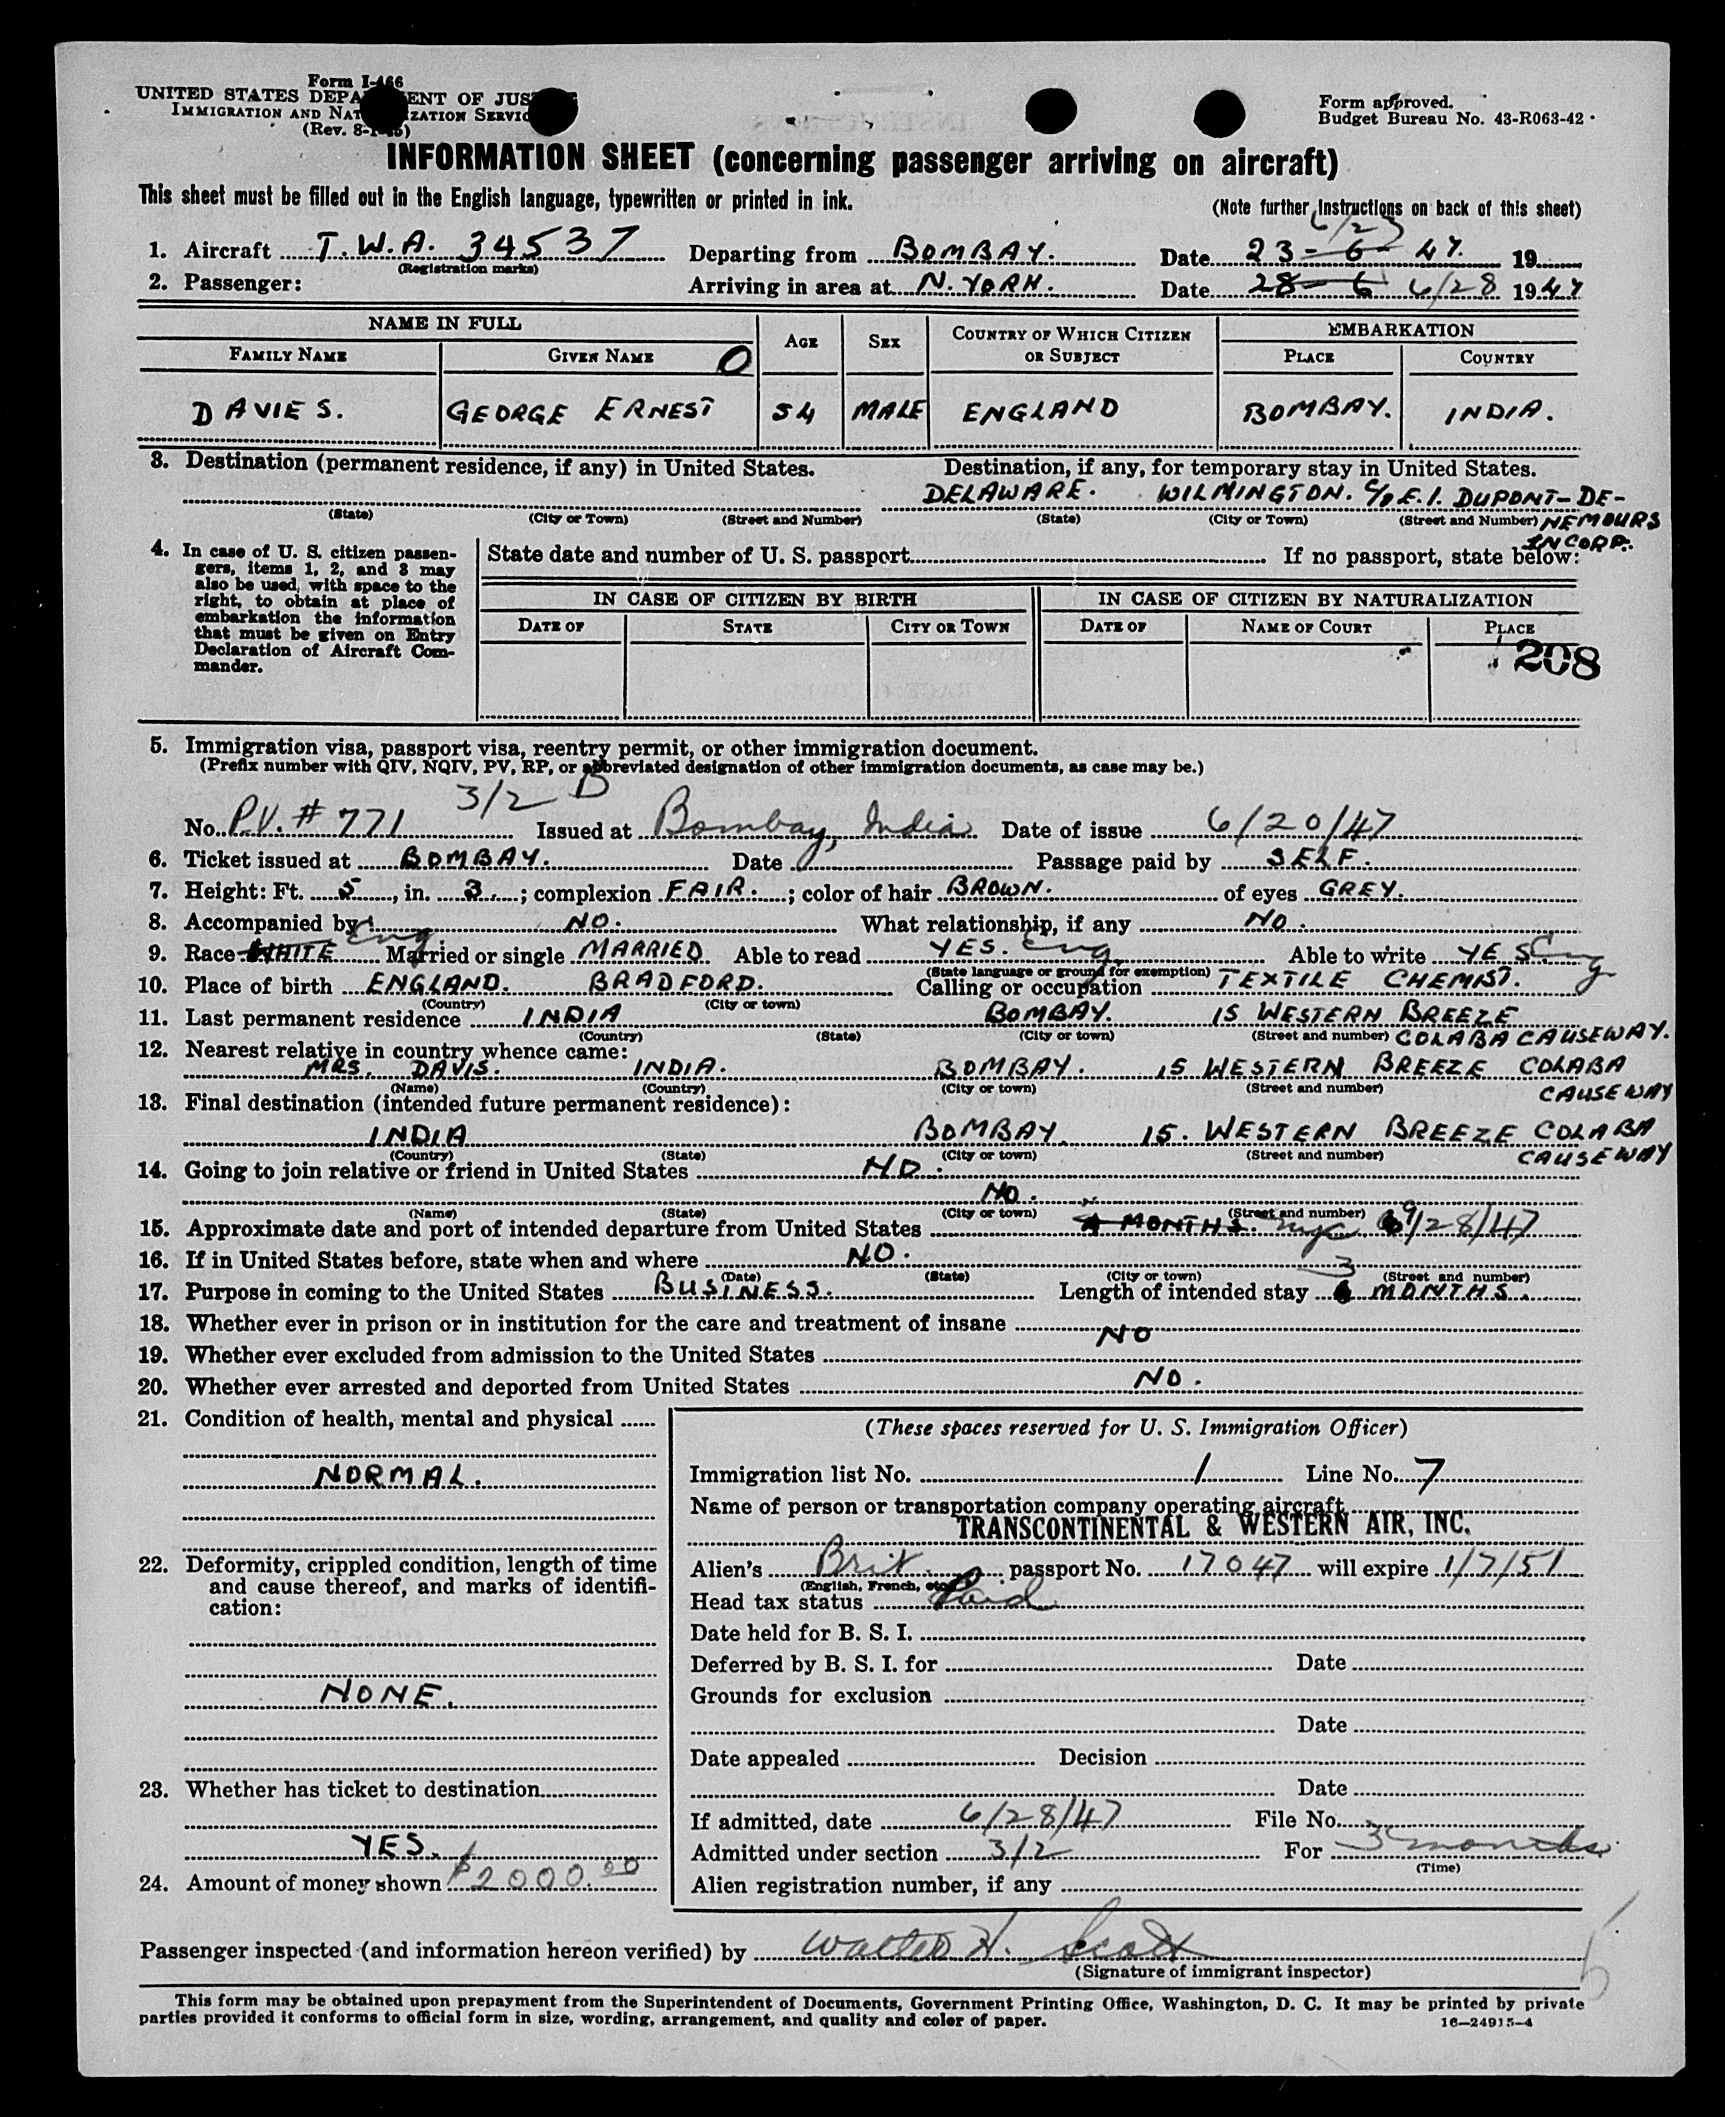 Form I-466
UNITED STATES DEPARTMENT OF JUSTICE
IMMIGRATION AND NATURALIZATION SERVICE
(Rev. 8-1-45)
Form approved.
Budget Bureau No. 43-R063-42
INFORMATION SHEET (concerning passenger arriving on aircraft)
This sheet must be filled out in the English language, typewritten or printed in ink.
(Note further instructions on back of this sheet)
6/23
1. Aircraft T.W.A. 34537 Departing from BOMBAY. Date 23-6-47. 19
(Registration marks)
2. Passenger: Arriving in area at N.YORK. Date 28-6 6/28 1947
NAME IN FULL AGE SEX COUNTRY OF WHICH CITIZEN OR SUBJECT EMBARKATION
FAMILY NAME GIVEN NAME O PLACE COUNTRY
DAVIES. GEORGE ERNEST 54 MALE ENGLAND BOMBAY. INDIA.
3. Destination (permanent residence, if any) in United States. Destination, if any, for temporary stay in United States.
DELAWARE. WILMINGTON. C/O E.I. DUPONT-DE-
(State) (City or Town) (Street and Number) (State) (City or Town) (Street and Number) NEMOURS
INCORP.
4. In case of U. S. citizen passengers, items 1, 2, and 3 may also be used, with space to the right, to obtain at place of embarkation the information that must be given on Entry Declaration of Aircraft Commander.
State date and number of U. S. passport If no passport, state below:
IN CASE OF CITIZEN BY BIRTH IN CASE OF CITIZEN BY NATURALIZATION
DATE OF STATE CITY OR TOWN DATE OF NAME OF COURT PLACE
208
5. Immigration visa, passport visa, reentry permit, or other immigration document.
(Prefix number with QIV, NQIV, PV, RP, or abbreviated designation of other immigration documents, as case may be.)
3/2 B
No. P.V. # 771 Issued at Bombay, India Date of issue 6/20/47
6. Ticket issued at BOMBAY. Date Passage paid by SELF.
7. Height: Ft. 5, in. 3.; complexion FAIR.; color of hair BROWN. of eyes GREY.
8. Accompanied by NO. What relationship, if any NO.
9. Race WHITE Eng Married or single MARRIED Able to read YES. Eng Able to write YES Eng
(State language or ground for exemption)
10. Place of birth ENGLAND. BRADFORD. Calling or occupation TEXTILE CHEMIST.
(Country) (City or town)
11. Last permanent residence INDIA BOMBAY. 15 WESTERN BREEZE
(Country) (State) (City or town) (Street and number) COLABA CAUSEWAY.
12. Nearest relative in country whence came:
MRS. DAVIS. INDIA. BOMBAY. 15 WESTERN BREEZE COLABA
(Name) (Country) (City or town) (Street and number) CAUSEWAY
13. Final destination (intended future permanent residence):
INDIA BOMBAY. 15. WESTERN BREEZE COLABA
(Country) (State) (City or town) (Street and number) CAUSEWAY
14. Going to join relative or friend in United States NO.
NO.
(Name) (State) (City or town) (Street and number)
15. Approximate date and port of intended departure from United States 4 MONTHS. nyc 9/28/47
16. If in United States before, state when and where NO.
(Date) (State) (City or town) (Street and number)
3
17. Purpose in coming to the United States BUSINESS. Length of intended stay MONTHS.
18. Whether ever in prison or in institution for the care and treatment of insane
NO
19. Whether ever excluded from admission to the United States
20. Whether ever arrested and deported from United States NO.
21. Condition of health, mental and physical
NORMAL.
22. Deformity, crippled condition, length of time and cause thereof, and marks of identification:
NONE.
23. Whether has ticket to destination
YES.
24. Amount of money shown $2000.00
(These spaces reserved for U. S. Immigration Officer)
Immigration list No. 1 Line No. 7
Name of person or transportation company operating aircraft
TRANSCONTINENTAL & WESTERN AIR, INC.
Alien's Brit. passport No. 17047 will expire 1/7/51
(English, French, etc.)
Head tax status Paid
Date held for B. S. I.
Deferred by B. S. I. for Date
Grounds for exclusion
Date
Date appealed Decision
Date
If admitted, date 6/28/47 File No.
Admitted under section 3/2 For 3 months
(Time)
Alien registration number, if any
Passenger inspected (and information hereon verified) by Walter H. Scott
(Signature of immigrant inspector)
This form may be obtained upon prepayment from the Superintendent of Documents, Government Printing Office, Washington, D. C. It may be printed by private
parties provided it conforms to official form in size, wording, arrangement, and quality and color of paper.
16—24915-4